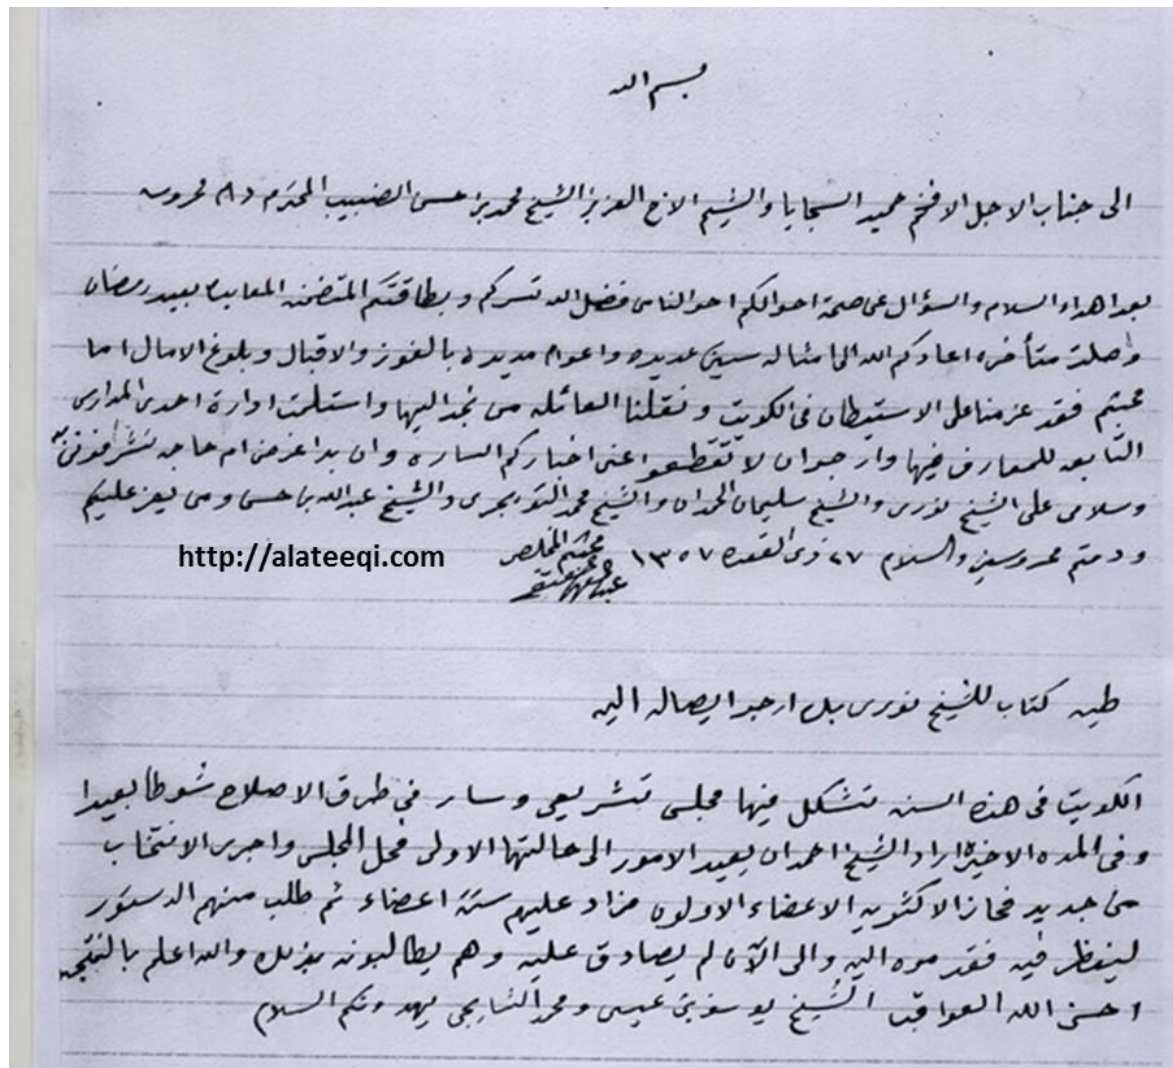 بسم الله
الى جناب الاجل الافخم حميد السجايا والشيم الاخ العزيز الشيخ محمد بن حسن الضبيب المحترم دام محروسه
بعد اهداء السلام والسؤال عن صحة احوالكم احوالنا من فضل الله تسركم وبطاقتكم المتضمنه المعايده بعيد رمضان
واصلت متأخره اعادكم الله الى امثاله سنين عديده واعوام مديده بالفوز والاقبال وبلوغ الامال اما
محبتم فقد عزمنا على الاستيطان في الكويت ونقلنا العائله من نجد اليها واستلمت ادارة احدى المدارس
التابعه للمعارف فيها وارجو ان لا تقطعوا عني اخباركم الساره وان بدا غرض ام حاجه
وسلامي على الشيخ نوري والشيخ سليمان الحمدان والشيخ محمد التويجري والشيخ عبدالله بن حسن ومن يعز عليكم
ودمتم محروسين والسلام ٢٧ ذي القعده ١٣٥٧ محبتم المخلص
http://alateeqi.com
طيه كتاب للشيخ نوري بل ارجو ايصاله اليه
الكويت في هذه السنه تشكل فيها مجلس تشريعي وسار في طرق الاصلاح شوطا بعيدا
وفي المده الاخيره اراد الشيخ احمد ان يعيد الامور الى حالتها الاولى فحل المجلس واجرى الانتخاب
من جديد فحاز الاكثريه الاعضاء الاولون فزاد عليهم ستة اعضاء ثم طلب منهم الدستور
لينظر فيه فقدموه اليه والى الآن لم يصادق عليه وهم يطالبونه بذلك والله اعلم بالنتيجه
احسن الله العواقب الشيخ يوسف بن عيسى ومحمد الشايجي يهدونكم السلام